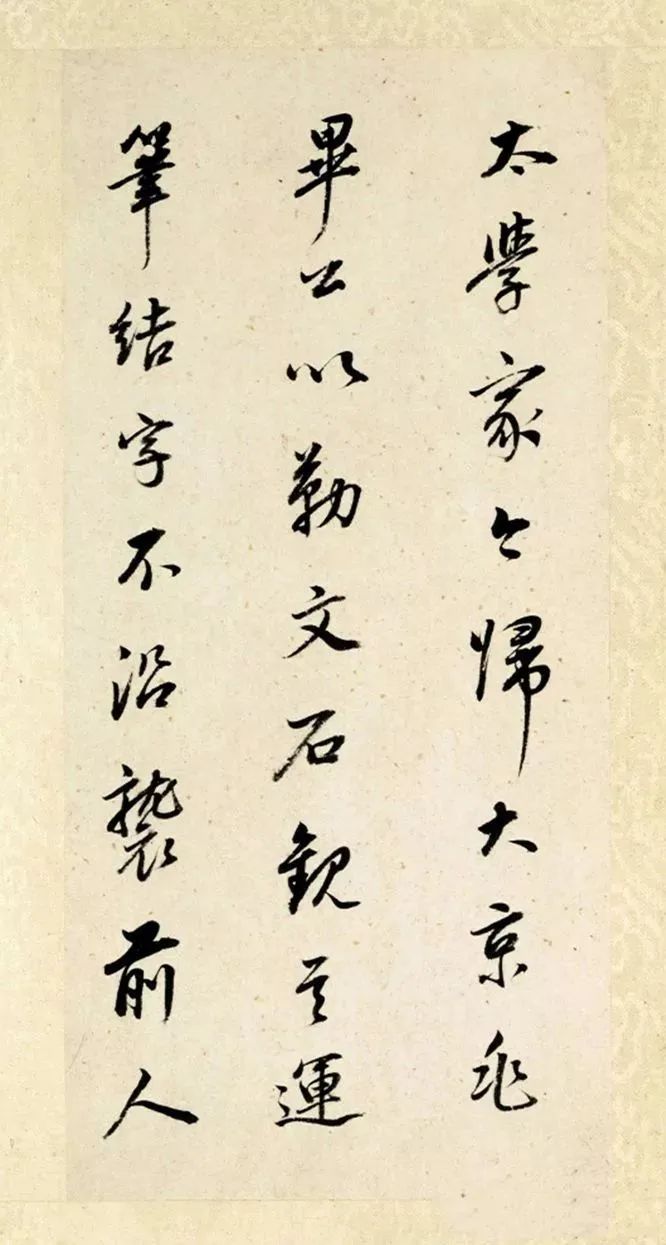 太學家今歸大京兆
畢公以勒文石觀其運
筆結字不沿襲前人